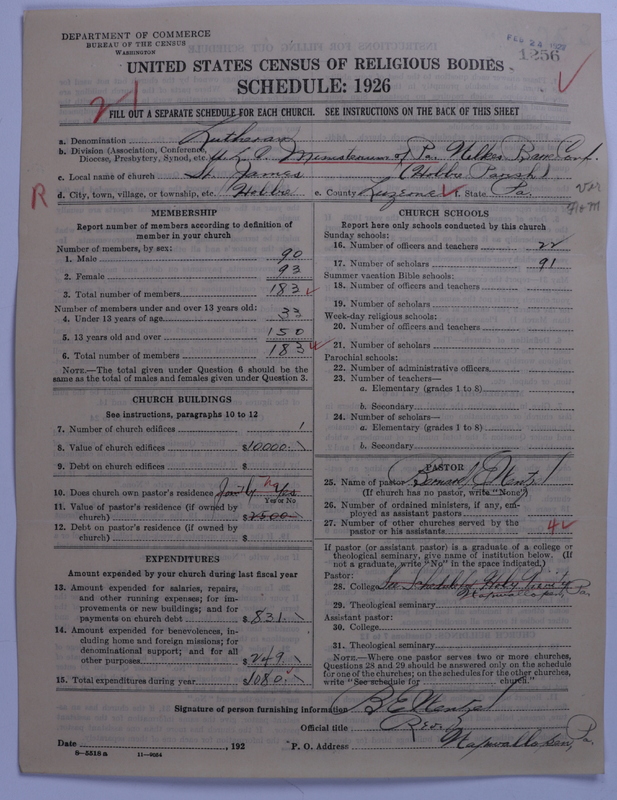 DEPARTMENT OF COMMERCE
BUREAU OF THE CENSUS
WASHINGTON
FEB 24
1256
UNITED STATES CENSUS OF RELIGIOUS BODIES
SCHEDULE: 1926
21
FILL OUT A SEPARATE SCHEDULE FOR EACH CHURCH. SEE INSTRUCTIONS ON THE BACK OF THIS SHEET
a. Denomination Lutheran
b. Division (Association, Conference, Diocese, Presbytery, Synod, etc. U. L. C. Ministerium of Pa. Wilkes Barre Conf.
c. Local name of church St. James (Hobbie Parish)
R d. City, town, village, or township, etc. Hobbie e. County Luzerne f. State Pa.
MEMBERSHIP
Report number of members according to definition of member in your church
Number of members, by sex:
1. Male 90
2. Female 93
3. Total number of members 183
Number of members under and over 13 years old:
4. Under 13 years of age 33
5. 13 years old and over 150
6. Total number of members 183
NOTE.—The total given under Question 6 should be the same as the total of males and females given under Question 3.
CHURCH BUILDINGS
See instructions, paragraphs 10 to 12
7. Number of church edifices 1
8. Value of church edifices $10000.
9. Debt on church edifices $
10. Does church own pastor's residence Yes
Yes or No
11. Value of pastor's residence (if owned by church) $2500
12. Debt on pastor's residence (if owned by church) $
EXPENDITURES
Amount expended by your church during last fiscal year
13. Amount expended for salaries, repairs, and other running expenses; for improvements or new buildings; and for payments on church debt $831.
14. Amount expended for benevolences, including home and foreign missions; for denominational support; and for all other purposes $249
15. Total expenditures during year $1080.
CHURCH SCHOOLS
Report here only schools conducted by this church
Sunday schools:
16. Number of officers and teachers 22
17. Number of scholars 91
Summer vacation Bible schools:
18. Number of officers and teachers
19. Number of scholars
Week-day religious schools:
20. Number of officers and teachers
21. Number of scholars
Parochial schools:
22. Number of administrative officers
23. Number of teachers—
a. Elementary (grades 1 to 8)
b. Secondary
24. Number of scholars—
a. Elementary (grades 1 to 8)
b. Secondary
PASTOR
25. Name of pastor
(If church has no pastor, write "None")
26. Number of ordained ministers, if any, employed as assistant pastors
27. Number of other churches served by the pastor or his assistants 4
If pastor (or assistant pastor) is a graduate of a college or theological seminary, give name of institution below. (If not a graduate, write "No" in the space indicated.)
Pastor:
28. College See Schedule of Holy Trinity Wapwallopen, Pa.
29. Theological seminary
Assistant pastor:
30. College
31. Theological seminary
NOTE.—Where one pastor serves two or more churches, Questions 28 and 29 should be answered only on the schedule for one of the churches; on the schedules for the other churches, write "See schedule for church."
Signature of person furnishing information
Official title Rev.
Date , 192 P. O. Address Wapwallopen, Pa.
8-5518 a 11-9054